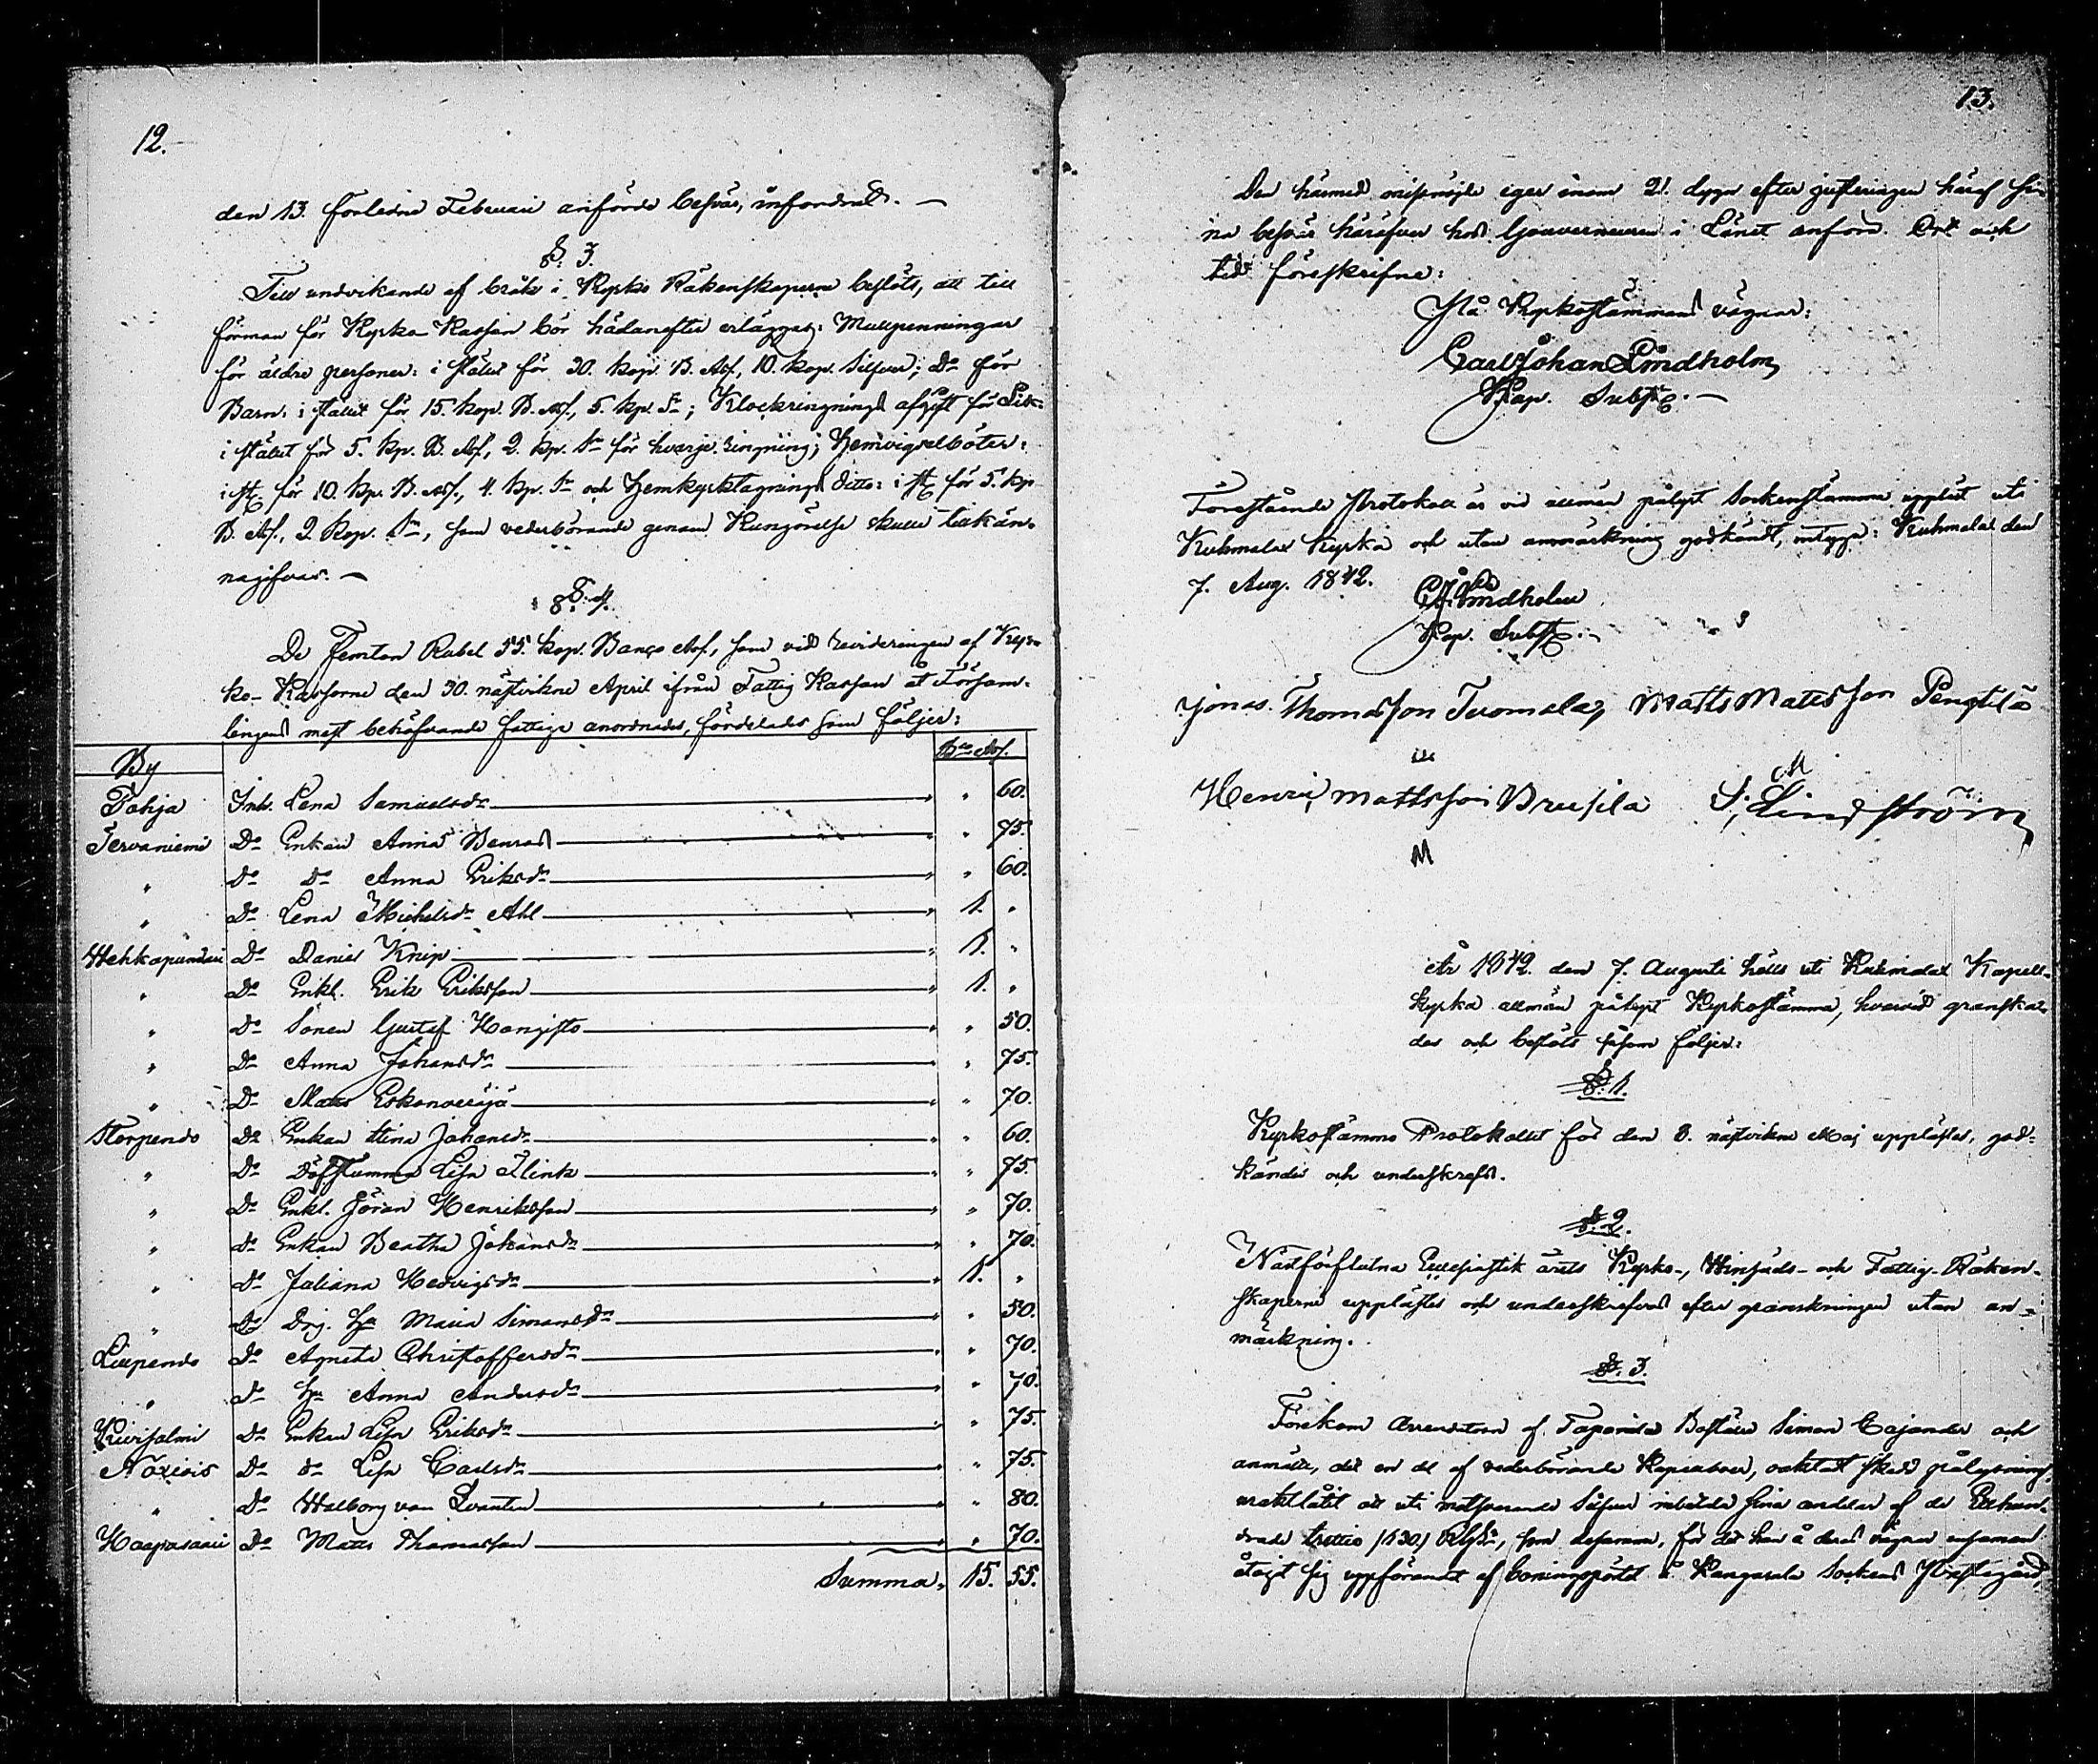 12.
den 13. förledne Februari anförde besvär, infordrad. —
§. 3.
Till undvikande af bråk i Kyrko Räkenskaperna beslöts, att till
förman för Kyrko Kassan bör hädanefter erläggas: Mullpenningar
för äldre personer: i stället för 30. kop. B. Ass., 10. kop. Silfver; Do för
Barn: i stället för 15. kop. B. Ass., 5. kp. Sr; Klockringnings afgift för Lik:
i stället för 5. kp. B. Ass, 2. kp. Sr för hvarje ringning; Hemvigselböter:
i st. för 10. kp. B. Ass., 4. kp. Sr och Hemkyrktagnings ditto: i st. för 5. kp
B. Ass., 2. kop. Sr, som vederbörande genom Kungörelse skulle tillkän-
nagifvas. —
§. 4.
De Femton Rubel 55. kop. Banco Ass, som vid revideringen af Kyr-
ko- Kassorne den 30. nästvikne April ifrån Fattig Kassan åt Försam-
lingens mest behöfvande fattige anordnades, fördelades som följer:
By Bco Ass.
Pohja Inh. Lena Samuelsdr " 60.
Tervaniemi Do Enkan Anna " 75.
" Do Do Anna Eriksdr " 60.
" Do Lena Michelsdr Ahl 1. "
Wehkapundi Do Daniel Knip 1. "
" Do Enkl. Erik Eriksson 1. "
" Do Sonen Gustaf Hangisto " 50.
" Do Anna Johansdr " 75.
" Do Matts " 70.
Storpendo Do Enkan Stina Johansdr " 60.
" Do Döfstumma Lisa Flink " 75.
" Do Enkl. Jöran Henriksson " 70.
" Do Enkan Beatha Johansdr " 70.
" Do Juliana Hedvigsdr 1. "
" Do Maria Simonsdr " 50.
Lillpendo Do Agneta Christoffersdr " 70.
" Do Anna Andersdr " 70.
Kivisalmi Do Enkan Lisa Eriksdr " 75.
Do Do Lisa Carlsdr " 75.
" Do Walborg von Qvanten " 80.
Haapasaari Do Matts Thomasson " 70.
Summa 15. 55.
13.
Den härmed missnöjde eger inom 21. dygn efter justeringen häraf si-
na besvär häröfver hos Gouverneuren i Länet anföra. Ort och
tid föreskrifne:
På Kyrkostämmans vägnar:
Carl Johan Lindholm
Kap. Subst. —
Förestående Protokoll är vid allmän pålyst Sockenstämma uppläst uti
Kuhmalax Kyrka och utan anmärkning godkändt, intygar: Kuhmalax den
7. Aug. 1842.
C. J. Lindholm
Kap. Subst. —
Jonas Thomasson Tuomala, Matts Mattsson Penttilä
Henric Mattsson Brusila S. Lindström
M
År 1842. den 7. Augusti hölls uti Kuhmalax Kapell-
kyrka allmän pålyst Kyrkostämma, hvarvid granska-
des och beslöts såsom följer:
§. 1.
Kyrkostämmo Protokollet för den 8. nästvikne Maj upplästes, god-
kändes och underskrefs.
§. 2.
Nästförflutna Ecclesiastik årets Kyrko-, Winjuds- och Fattig-Räken-
skaperne upplästes och underskrefvos efter granskningen utan an-
märkning.
§. 3.
Förekom Arrendatorn af Tapanila Boställe Simon Cajander och
anmälte, det en del af vederbörande Kapellboer, oaktat skedd pålysning,
uraktlåtit att uti motsvarande Silfver inbetala sina andelar af de Etthun-
drade trettio /130/ som desamma, för det han å deras vägnar
åtagit sig uppförandet af boningspörtet å Kangasala Sockens Prestegård,